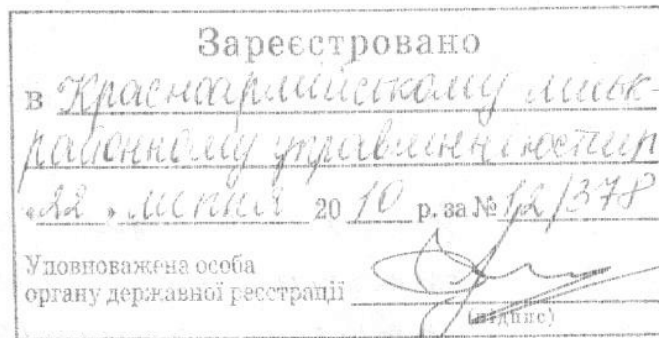 Зареєстровано
в Красноармійському міськ-
районному управлінні юстиції
«22» липня 2010 р. за № 12/378
Уповноважена особа
органу державної реєстрації
(підпис)